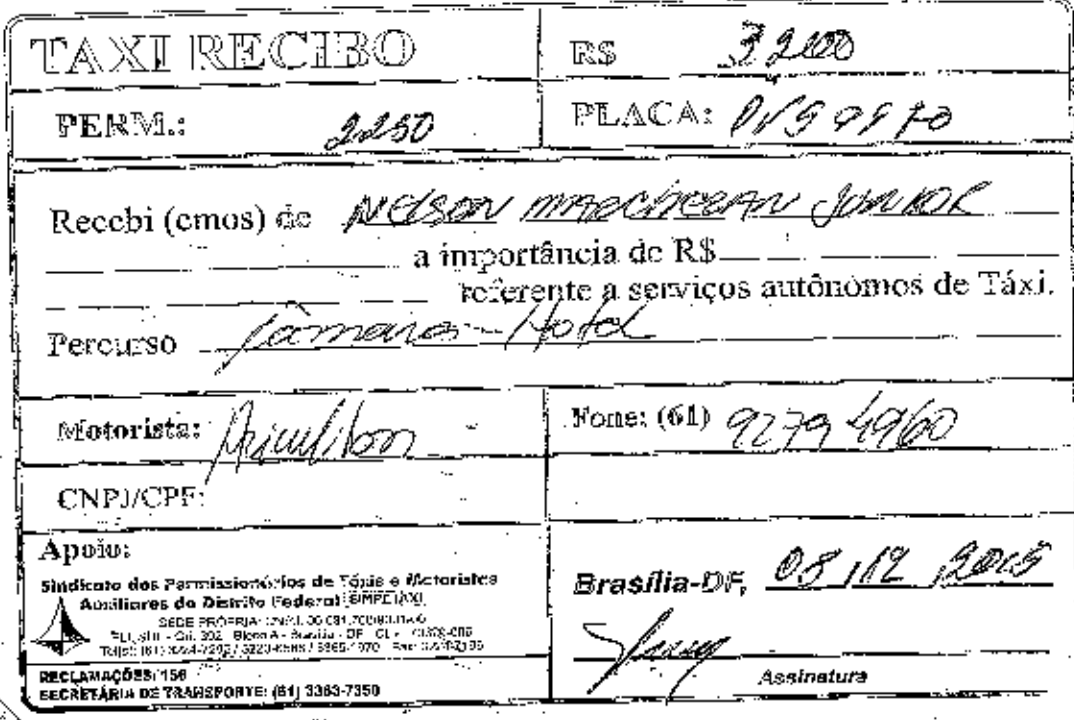 TAXI RECIBO
R$ 32,00
PERM.: 2250
PLACA:
Recebi (emos) de Nelson Marchezan Junior
a importância de R$
referente a serviços autônomos de Táxi.
Percurso Câmara - Hotel
Motorista:
Fone: (61) 9279 4960
CNPJ/CPF:
Apoio:
Sindicato dos Permissionários de Táxis e Motoristas
Auxiliares do Distrito Federal
SEDE PRÓPRIA:
RECLAMAÇÕES: 156
SECRETÁRIA DE TRANSPORTE: (61) 3363-7350
Brasília-DF, 08 / 12 / 2015
Assinatura